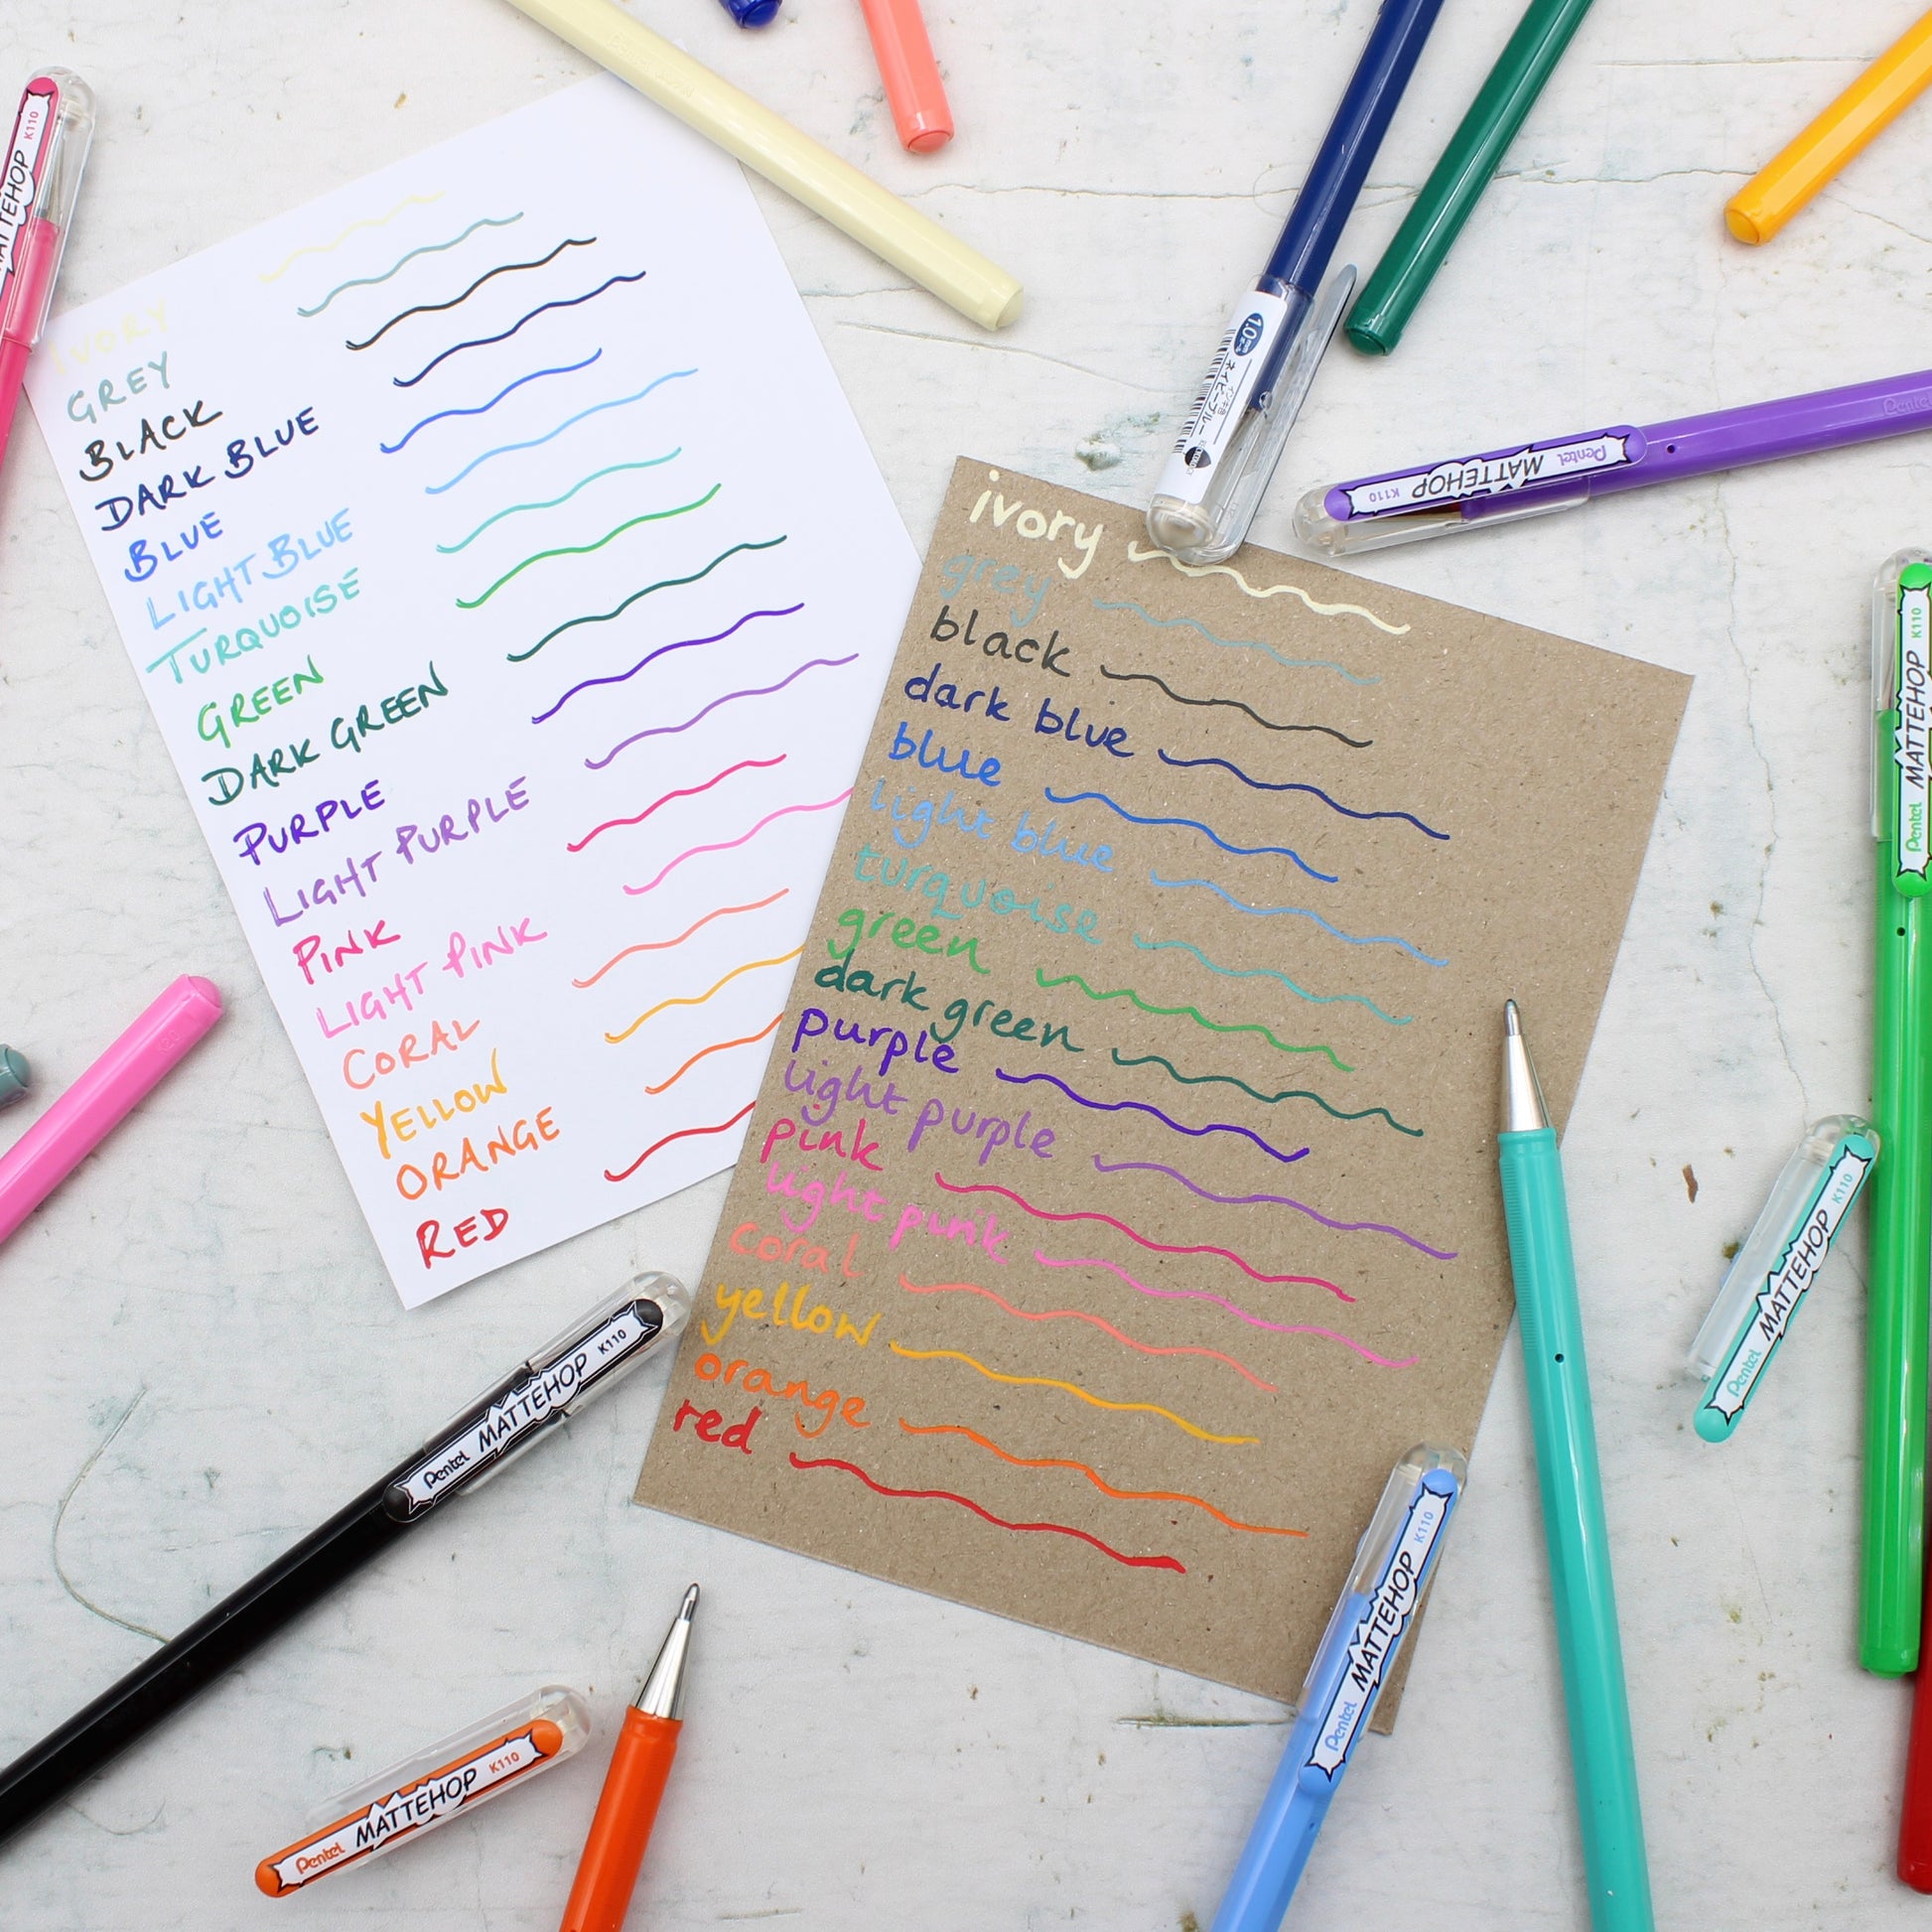 IVORY
GREY
BLACK
DARK BLUE
BLUE
LIGHT BLUE
TURQUOISE
GREEN
DARK GREEN
PURPLE
LIGHT PURPLE
PINK
LIGHT PINK
CORAL
YELLOW
ORANGE
RED
ivory
grey
black
dark blue
blue
light blue
turquoise
green
dark green
purple
light purple
pink
light pink
coral
yellow
orange
red
MATTEHOP K110
1.0
Pentel MATTEHOP K110
Pentel
Pentel MATTEHOP K110
Pentel MATTEHOP K110
Pentel MATTEHOP K110
Pentel MATTEHOP K110
Pentel MATTEHOP K110